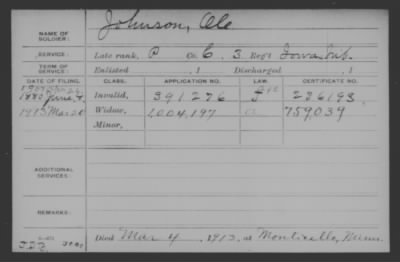 NAME OF SOLDIER: Johnson, Ole
SERVICE: Late rank, P Co. C, 3 Reg't Iowa Inf.
TERM OF SERVICE: Enlisted , 1 Discharged , 1
DATE OF FILING. CLASS. APPLICATION NO. LAW. CERTIFICATE NO.
1880 June Invalid, 391276 236193
1913 Mar 20 Widow, 1004,197 759039
Minor,
ADDITIONAL SERVICES:
REMARKS:
Died Mar 4, 1913, at Monticello, Minn.